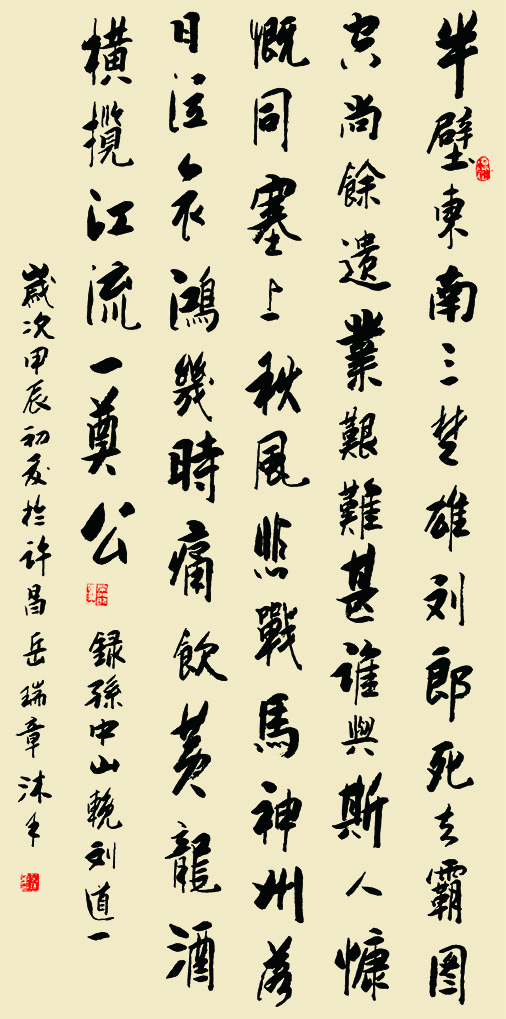 半壁東南三楚雄刘郎死去霸圖
空尚餘遺業艱難甚誰與斯人慷
慨同塞上秋風悲戰馬神州落
日泣哀鴻幾時痛飲黄龍酒
橫攬江流一奠公 録孫中山輓刘道一
歲次甲辰初夏於許昌岳瑞章沐手